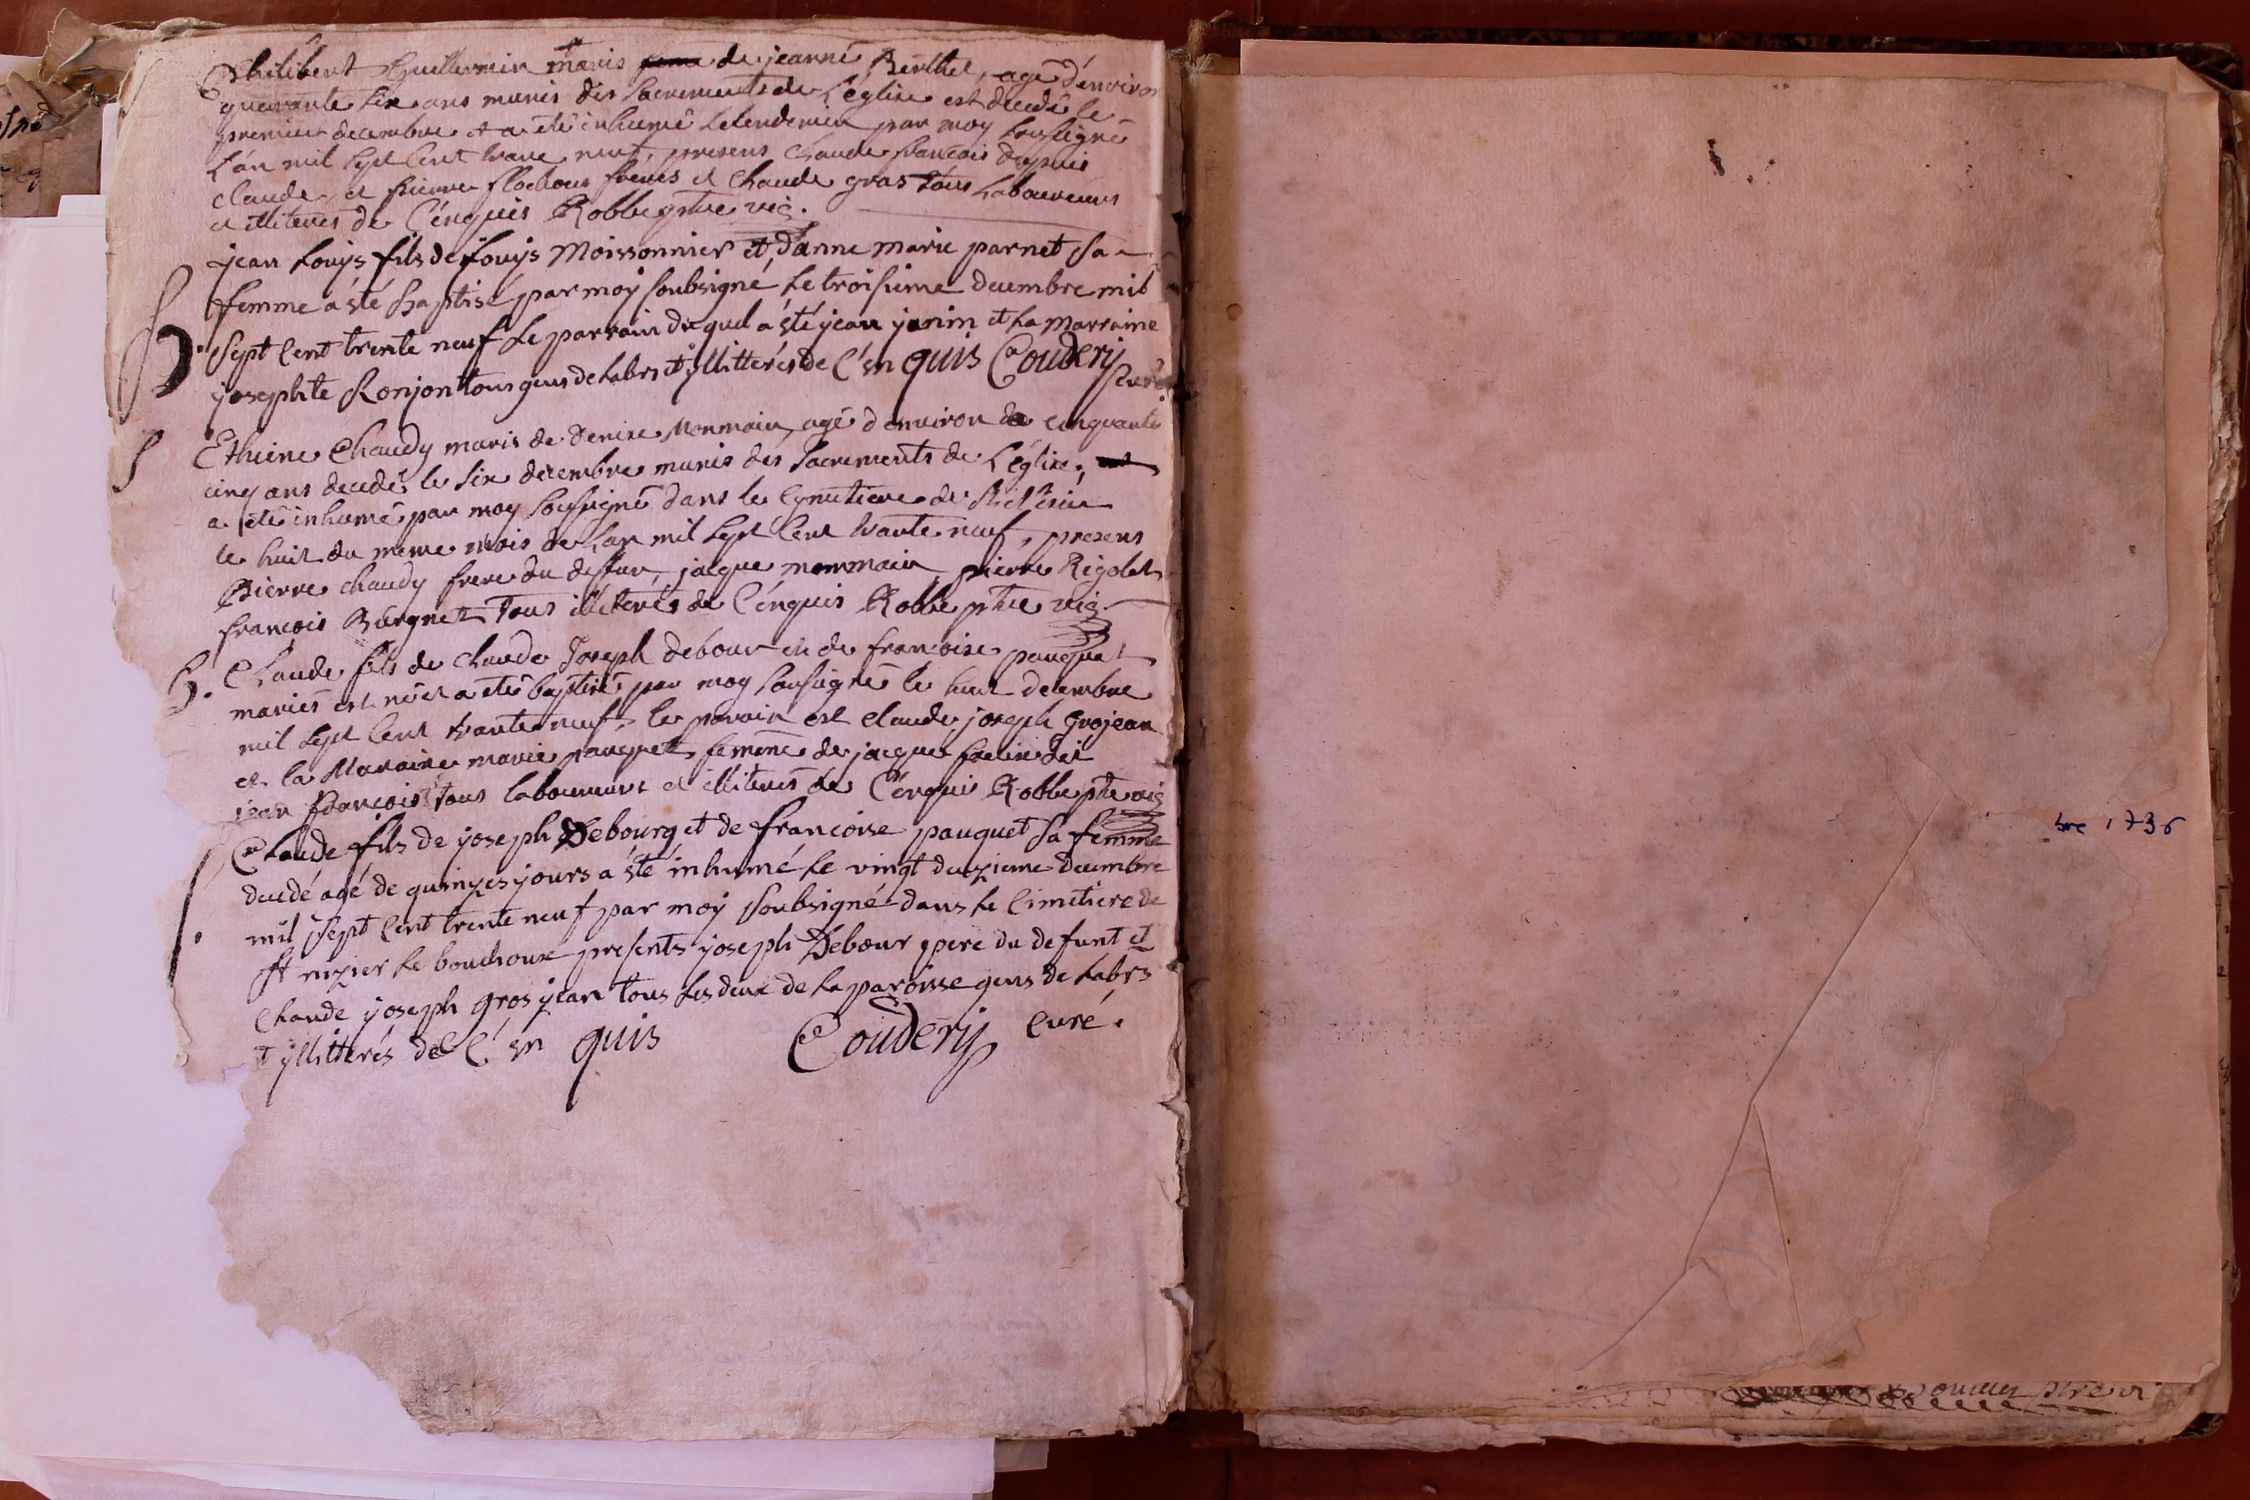 Philibert Guillermin maris de jeanne Berthet, agé d'environ
quarante six ans munis des sacrements de L'église est decedé le
premier decembre et a été inhumé le lendemin par moy soussigné
L'an mil sept cent trante neuf, presens Claude francois dupuis
claude et pierre flochon freres et Claude gras tous Laboureurs
et illiterés de C'énquis Robbe ptre vic.
jean Louÿs fils de Louÿs Moissonnier et d'anne marie parnet sa
femme a ésté Baptisé par moÿ soubsigné le troisieme decembre mil
B. sept cent trente neuf le parrain duquel a ésté jean janin et La marraine
josephte Ronjon tous gens de Labrs et ÿllitterés de C'en quis Couderÿ
curé
S Ethiene Chaudy maris de denise Monmain, agé d'environ de cinquante
cinq ans decedé le six decembre munis des sacrements de L'église,
a été inhumé par moy soussigné dans le Cymetiere de
le huit du meme mois de L'an mil sept cent trante neuf, presens
Pierre chaudy frere du defun, jacque monmain, pierre Rigolet
francois Burgnet Tous illiterés de C'énquis Robbe ptre vic.
B. Claude fils de claude Joseph debour et de francoise pauquet
mariés est né et a été baptisé par moy soussigné le huit decembre
mil sept cent trante neuf, le parrain est claude joseph Grojean
et la Maraine marie pauquet femme de jacque
jean francois tous laboureurs et illiterés de C'énquis Robbe ptre vic
Claude fils de joseph Debourg et de francoise pauquet sa femme
decedé agé de quinzes jours a ésté inhumé le vingt deuzieme decembre
mil sept cent trente neuf par moÿ soubsigné dans le cimetiere de
St nizier le bouchoux presents joseph Debour pere du defunt et
Claude joseph gros jean tous les deux de La paroisse gens de Labrs
et ÿllitterés de C'en quis Couderÿ curé.
bre 1736